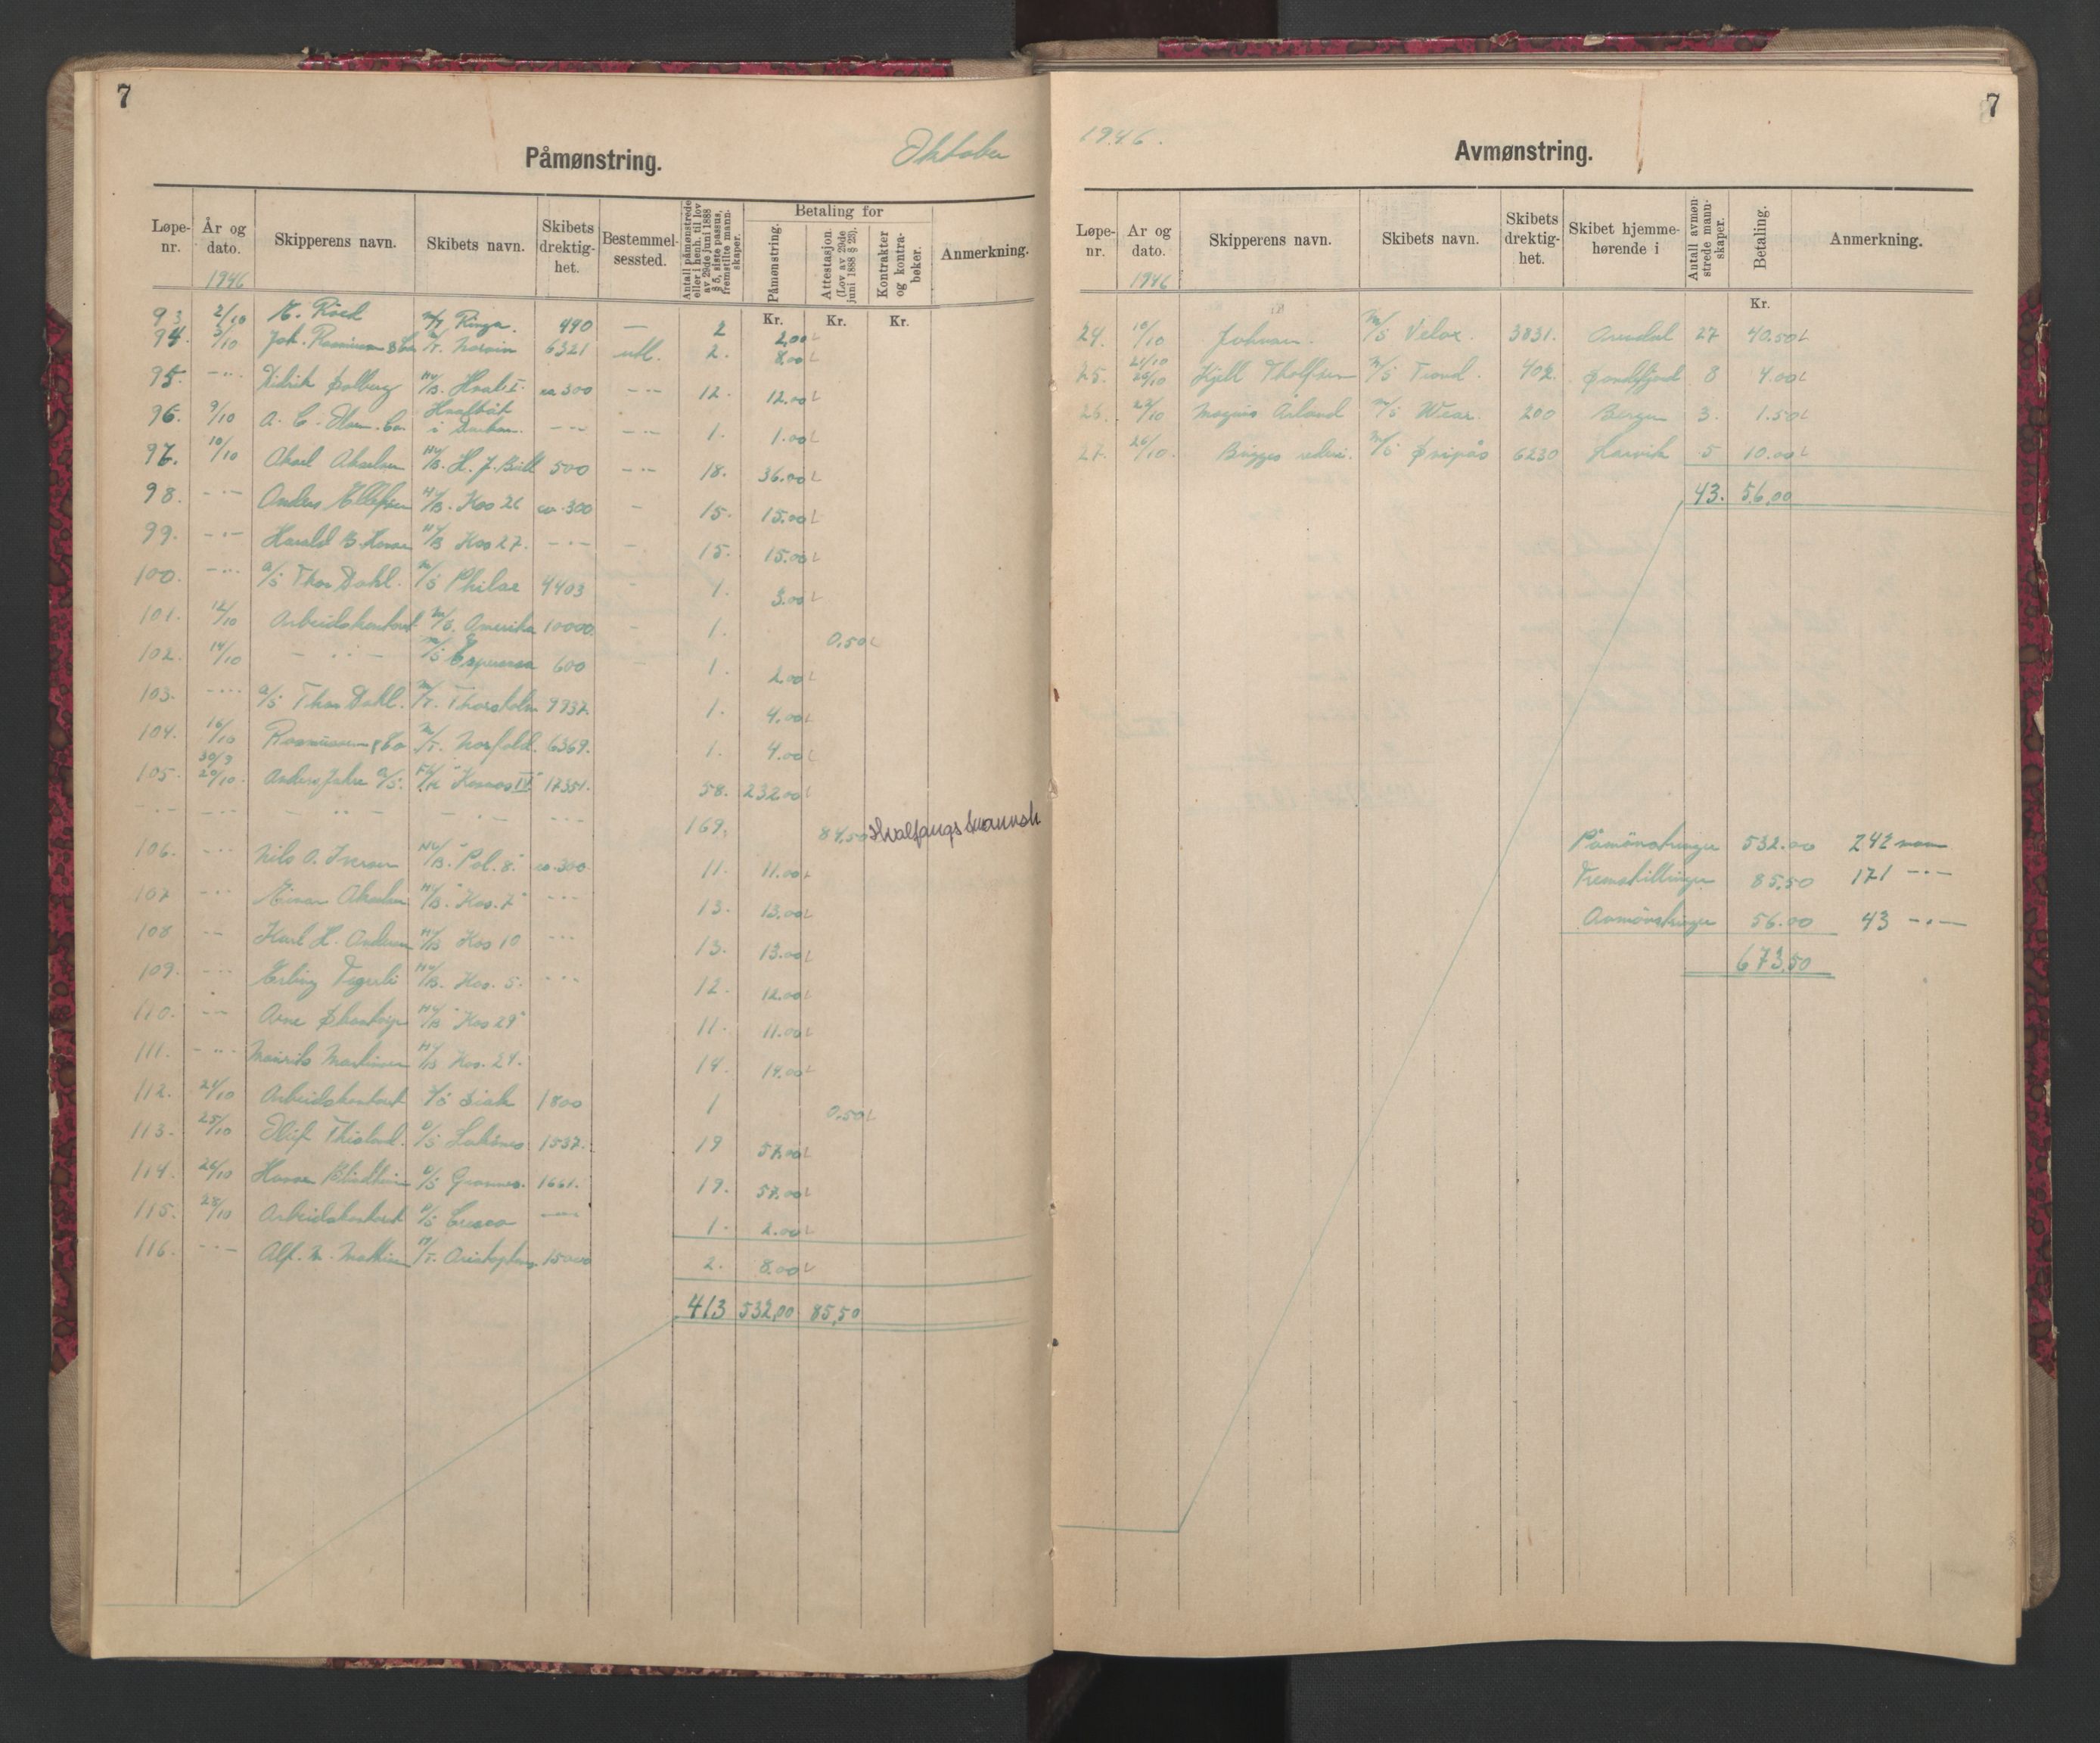 7
Påmønstring.
Oktober
Løpe-nr. År og dato. Skipperens navn. Skibets navn. Skibets drektig-het. Bestemmel-sessted. Antall påmønstrede eller i henh. til lov av 29de juni 1888 § 5, siste passus, fremstilte mann-skaper. Betaling for Påmønstring. Attestasjon (Lov av 29de juni 1888 § 23). Kontrakter og kontra-bøker. Anmerkning.
1946
Kr. Kr. Kr.
93 2/10 E. Röed M/T Ringa. 490 — 2 2,00
94. 3/10 Joh. Rasmussen & Co M/T. Norvin 6321 utl. 2. 8.00
95. -"- Didrik Solberg Hv/B. Hval I. ca 300 -"- 12. 12.00
96. 9/10 A. C. Olsen. Hvalbåt i Durban. -"- -"- 1. 1.00
97. 10/10 Aksel Akselsen Hv/B. H. J. Bull 500 -"- 18. 36.00
98. -"- Anders Ellefsen H/B. Kos 26 ca. 300 - 15. 15.00
99. -"- Harald B. Hv/B Kos 27. -"- - 15. 15.00
100. -"- A/S Thor Dahl. M/S Philae 4403 - 1. 3.00
101. 12/10 Arbeidskontoret M/S. Amerika 10000. - 1. 0.50
102. 14/10 - " - M/S Esperanza 600 - 1. 2.00
103. -"- A/S Thor Dahl. M/T. Thorsholm 9937. 1. 4.00
104. 16/10 Rasmussen & Co M/T. Norfold. 6369. 1. 4.00
105. 30/9 20/10. Anders Jahre A/S. Fl/K "Kosmos IV" 17351. 58. 232.00
-"- -"- - " - -"- -"- 169. 84,50 Hvalfangstmannsk
106. -"- Nils O. Iversen Hv/B. "Pol. 8." ca. 300. 11. 11.00
107 -"- Einar Akselsen Hv/B. "Kos. 7" -"- 13. 13.00
108 -"- Karl H. Andersen Hv/B Kos 10 -"- 13. 13.00
109. -"- Erling Hv/B. Kos. 5. -"- 12. 12.00
110. -"- Arne Hv/B "Kos 29" 11. 11.00
111. -"- Maurits Martinsen Hv/B Kos. 24. 14. 14.00
112. 24/10 Arbeidskontoret 1800 1 0.50
113. 25/10 Olif D/S 1537. 19 57.00
114. 26/10 D/S 1661. 19. 57.00
115. 28/10 Arbeidskontoret D/S -"- 1. 2.00
116. -"- Alf. M. Mathisen M/T. 15000 2. 8.00
413 532,00 85,50
7
1946.
Avmønstring.
Løpe-nr. År og dato. Skipperens navn. Skibets navn. Skibets drektig-het. Skibet hjemme-hørende i Antall avmøn-strede mann-skaper. Betaling. Anmerkning.
1946
Kr.
24. 10/10 Johnsen. M/S Velox. 3831. Arendal 27 40.50
25. 21/10 26/10 Kjell Tholfsen M/S Trond. 402. Sandefjord 8 4.00
26. 22/10 Magnus Årland M/S Wear. 200 Bergen 3. 1.50
27. 26/10. Brigges rederi. M/S 6230 Larvik 5 10.00
43. 56,00
Påmönstringer 532.00 242 mann
Fremstillinger 85,50 171 -"-
Avmönstringer 56.00 43 -"-
673,50